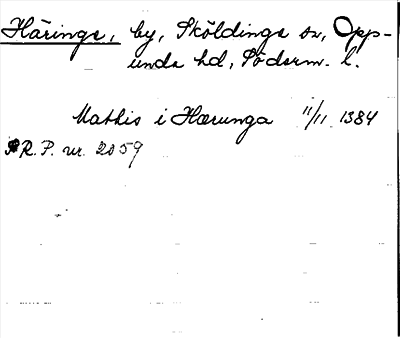 Häringe, by, Sköldinge sn, Opp-
unda hd, Söderm. l.
Mathis i Hærunga 11/11 1384
R.P. nr. 2059